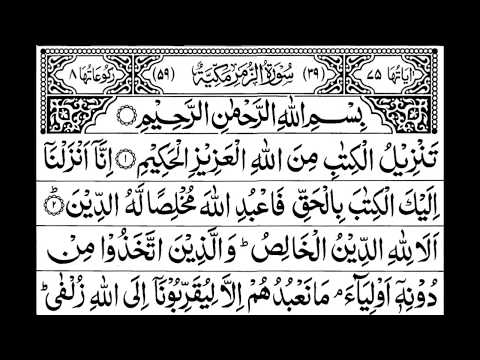 اٰيَاتُهَا ٧٥ (٣٩) سُوْرَةُ الزُّمَرِ مَكِّيَّةٌ (٥٩) رُكُوْعَاتُهَا ٨
بِسْمِ اللّٰهِ الرَّحْمٰنِ الرَّحِيْمِ
تَنْزِيْلُ الْكِتٰبِ مِنَ اللّٰهِ الْعَزِيْزِ الْحَكِيْمِ ۝١ اِنَّاۤ اَنْزَلْنَاۤ
اِلَيْكَ الْكِتٰبَ بِالْحَقِّ فَاعْبُدِ اللّٰهَ مُخْلِصًا لَّهُ الدِّيْنَ ۝٢
اَلَا لِلّٰهِ الدِّيْنُ الْخَالِصُ ؕ وَالَّذِيْنَ اتَّخَذُوْا مِنْ
دُوْنِهٖۤ اَوْلِيَآءَ ۘ مَا نَعْبُدُهُمْ اِلَّا لِيُقَرِّبُوْنَاۤ اِلَى اللّٰهِ زُلْفٰى ؕ